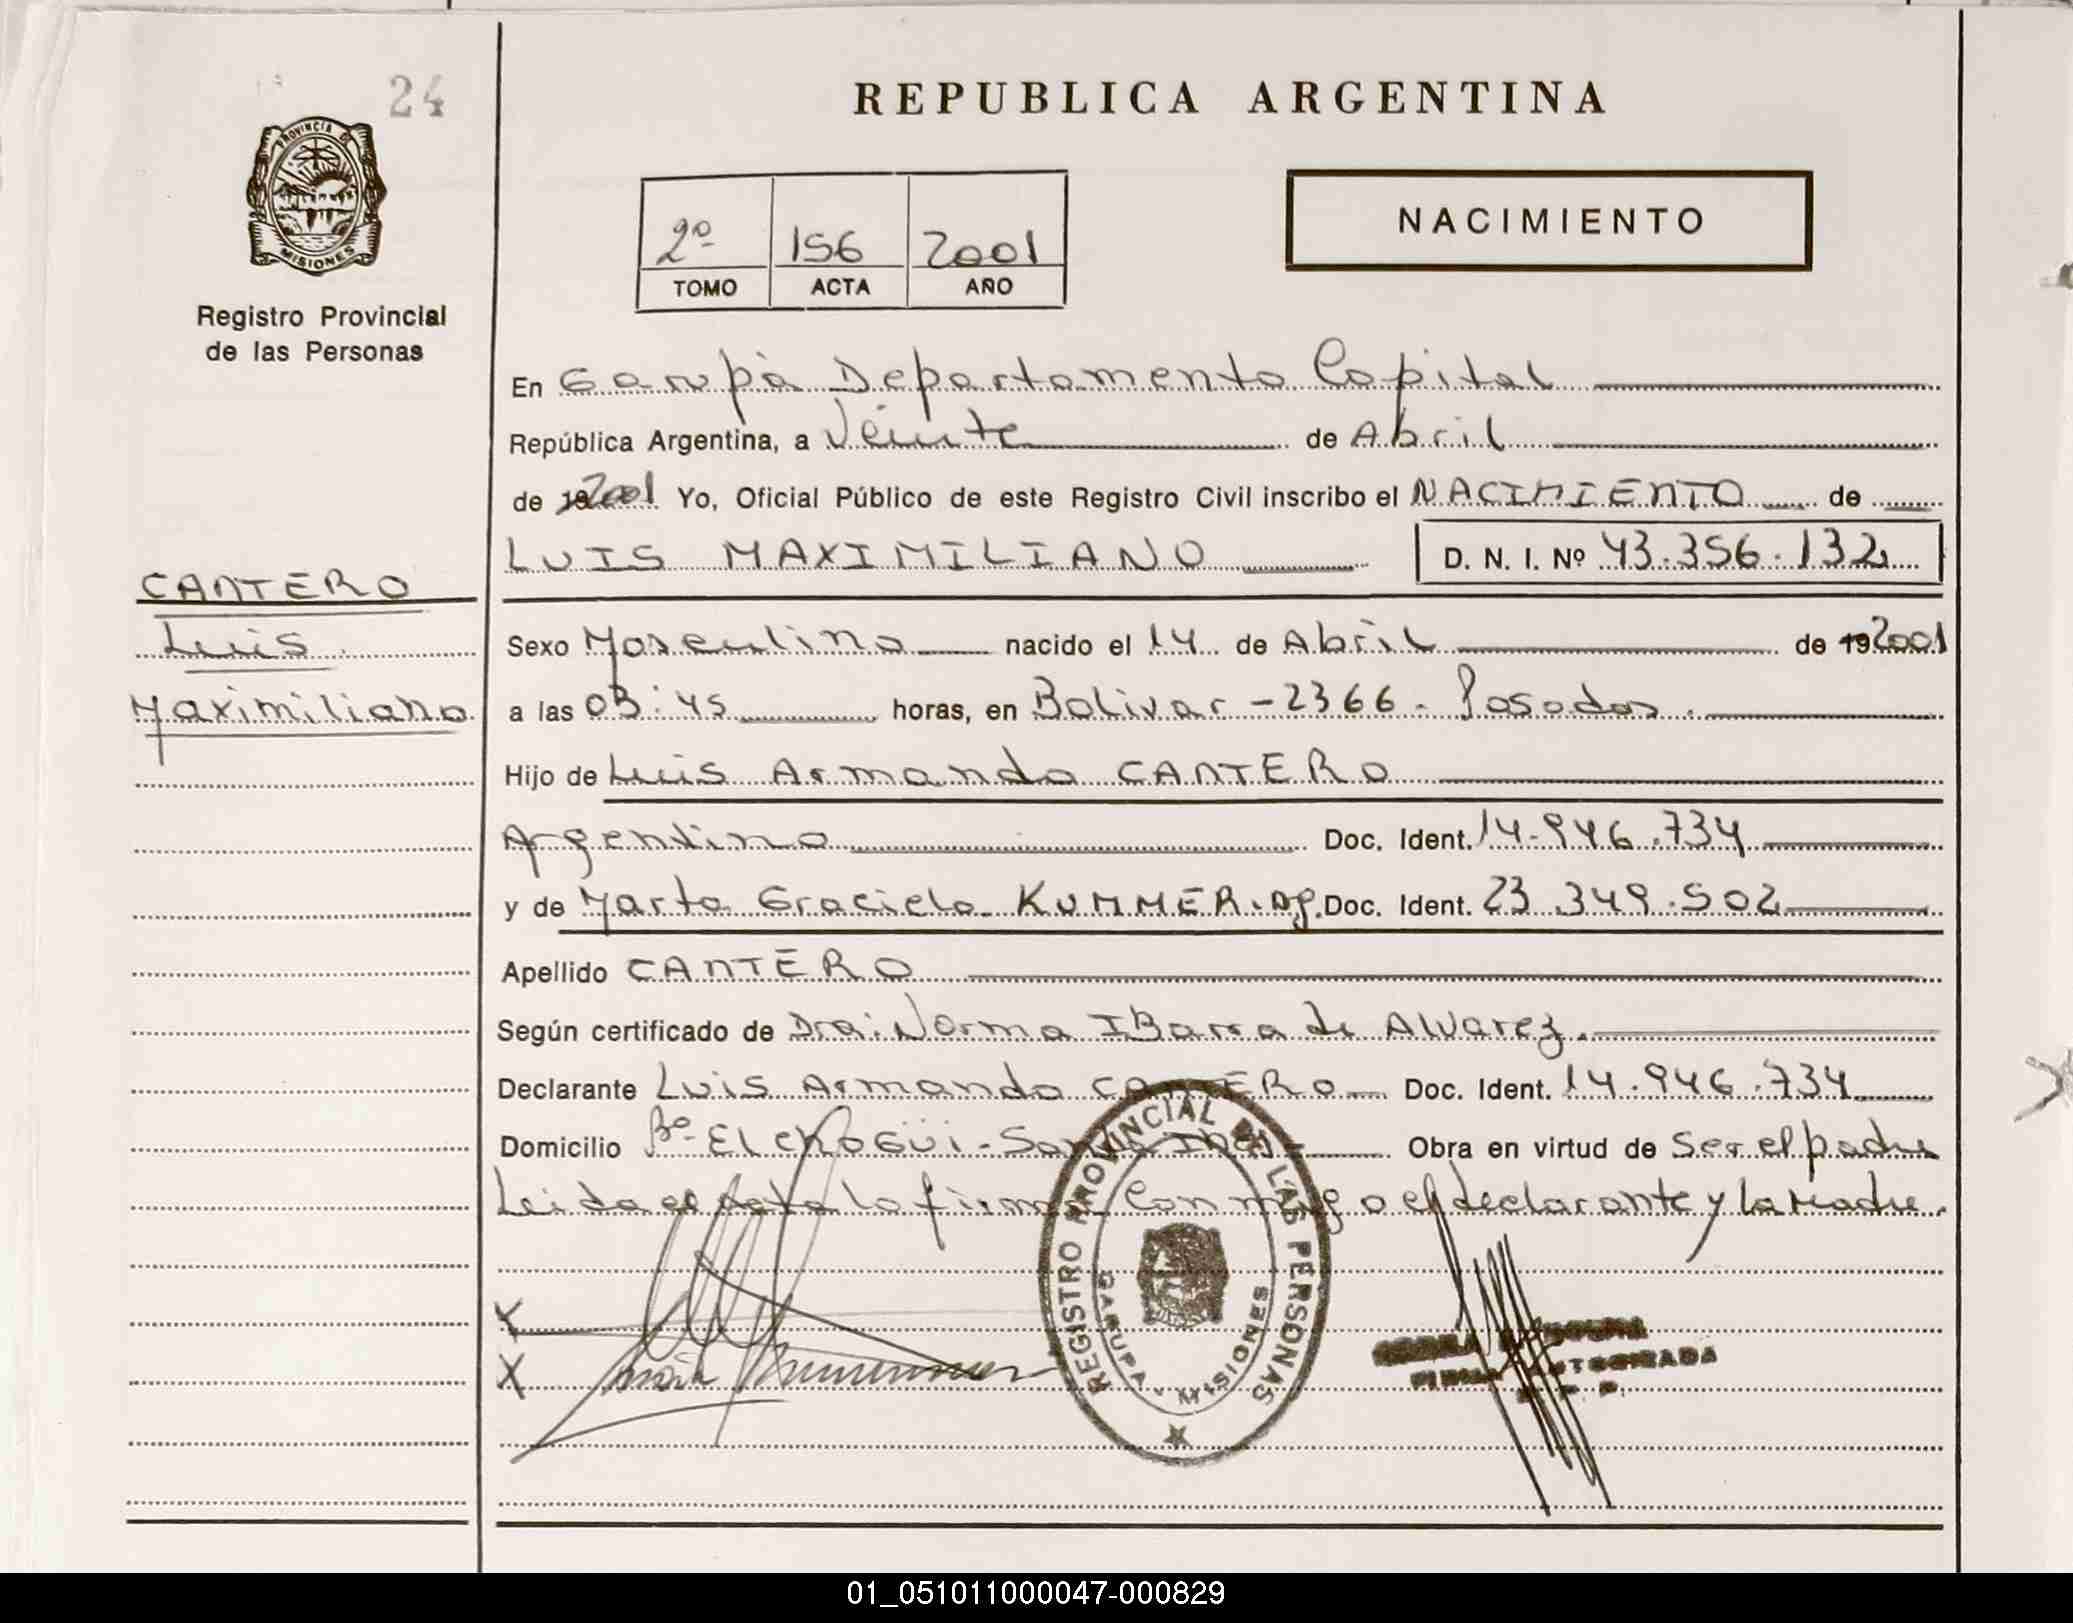 24
REPUBLICA ARGENTINA
PROVINCIA DE
MISIONES
Registro Provincial
de las Personas
2º 156 2001
TOMO ACTA AÑO
NACIMIENTO
En Garupà Departamento Capital
República Argentina, a Veinte de Abril
de 19 2001 Yo, Oficial Público de este Registro Civil inscribo el NACIMIENTO de
LUIS MAXIMILIANO D. N. I. Nº 43.356.132
CANTERO
Luis
Maximiliano
Sexo Masculino nacido el 14 de Abril de 19 2001
a las 03:45 horas, en Bolivar - 2366 - Posadas.
Hijo de Luis Armando CANTERO
Argentino Doc. Ident. 14.946.734
y de Marta Graciela KUMMER. Ag. Doc. Ident. 23.349.502
Apellido CANTERO
Según certificado de Dra. Norma IBarra de Alvarez.
Declarante Luis Armando CANTERO Doc. Ident. 14.946.734
Domicilio Bº El choGüi - Santa Ines Obra en virtud de Ser el padre
Leida el Acta la firman conmigo el declarante y la Madre.
REGISTRO PROVINCIAL DE LAS PERSONAS
GARUPA - MISIONES
X
X
FIRMA AUTORIZADA
01_051011000047-000829